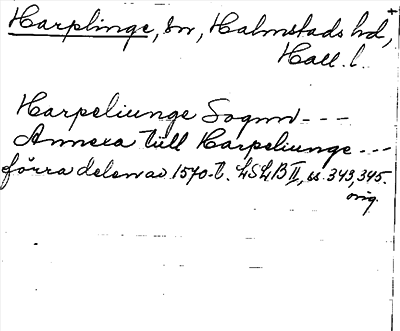 Harplinge, sn, Halmstads hd,
Hall. l.
Harpeliunge Sognn ---
Annexa till Harpeliunge ---
förra delen av 1570-t. LSLB II, ss. 343, 345.
orig.